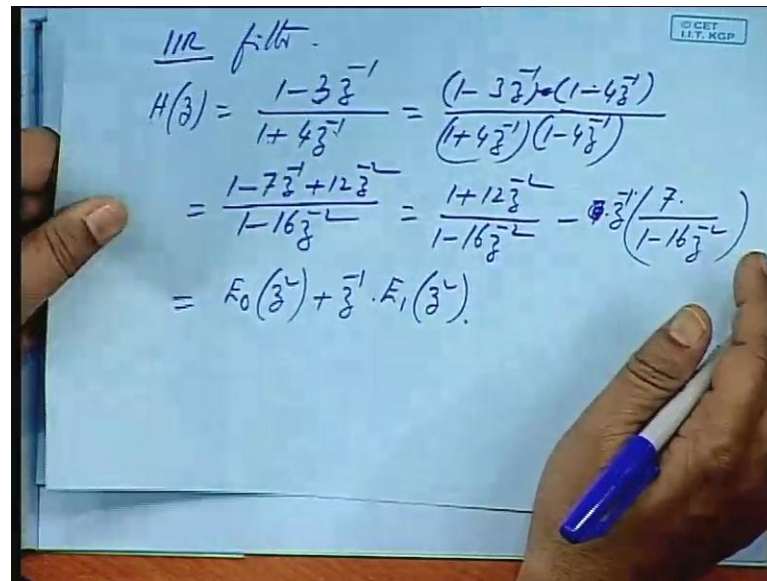 © CET
I.I.T. KGP
IIR filter.
H(z) = (1 - 3z⁻¹)/(1 + 4z⁻¹) = ((1 - 3z⁻¹)·(1 - 4z⁻¹))/((1 + 4z⁻¹)(1 - 4z⁻¹))
= (1 - 7z⁻¹ + 12z⁻²)/(1 - 16z⁻²) = (1 + 12z⁻²)/(1 - 16z⁻²) - z⁻¹(7/(1 - 16z⁻²))
= E₀(z²) + z⁻¹·E₁(z²).